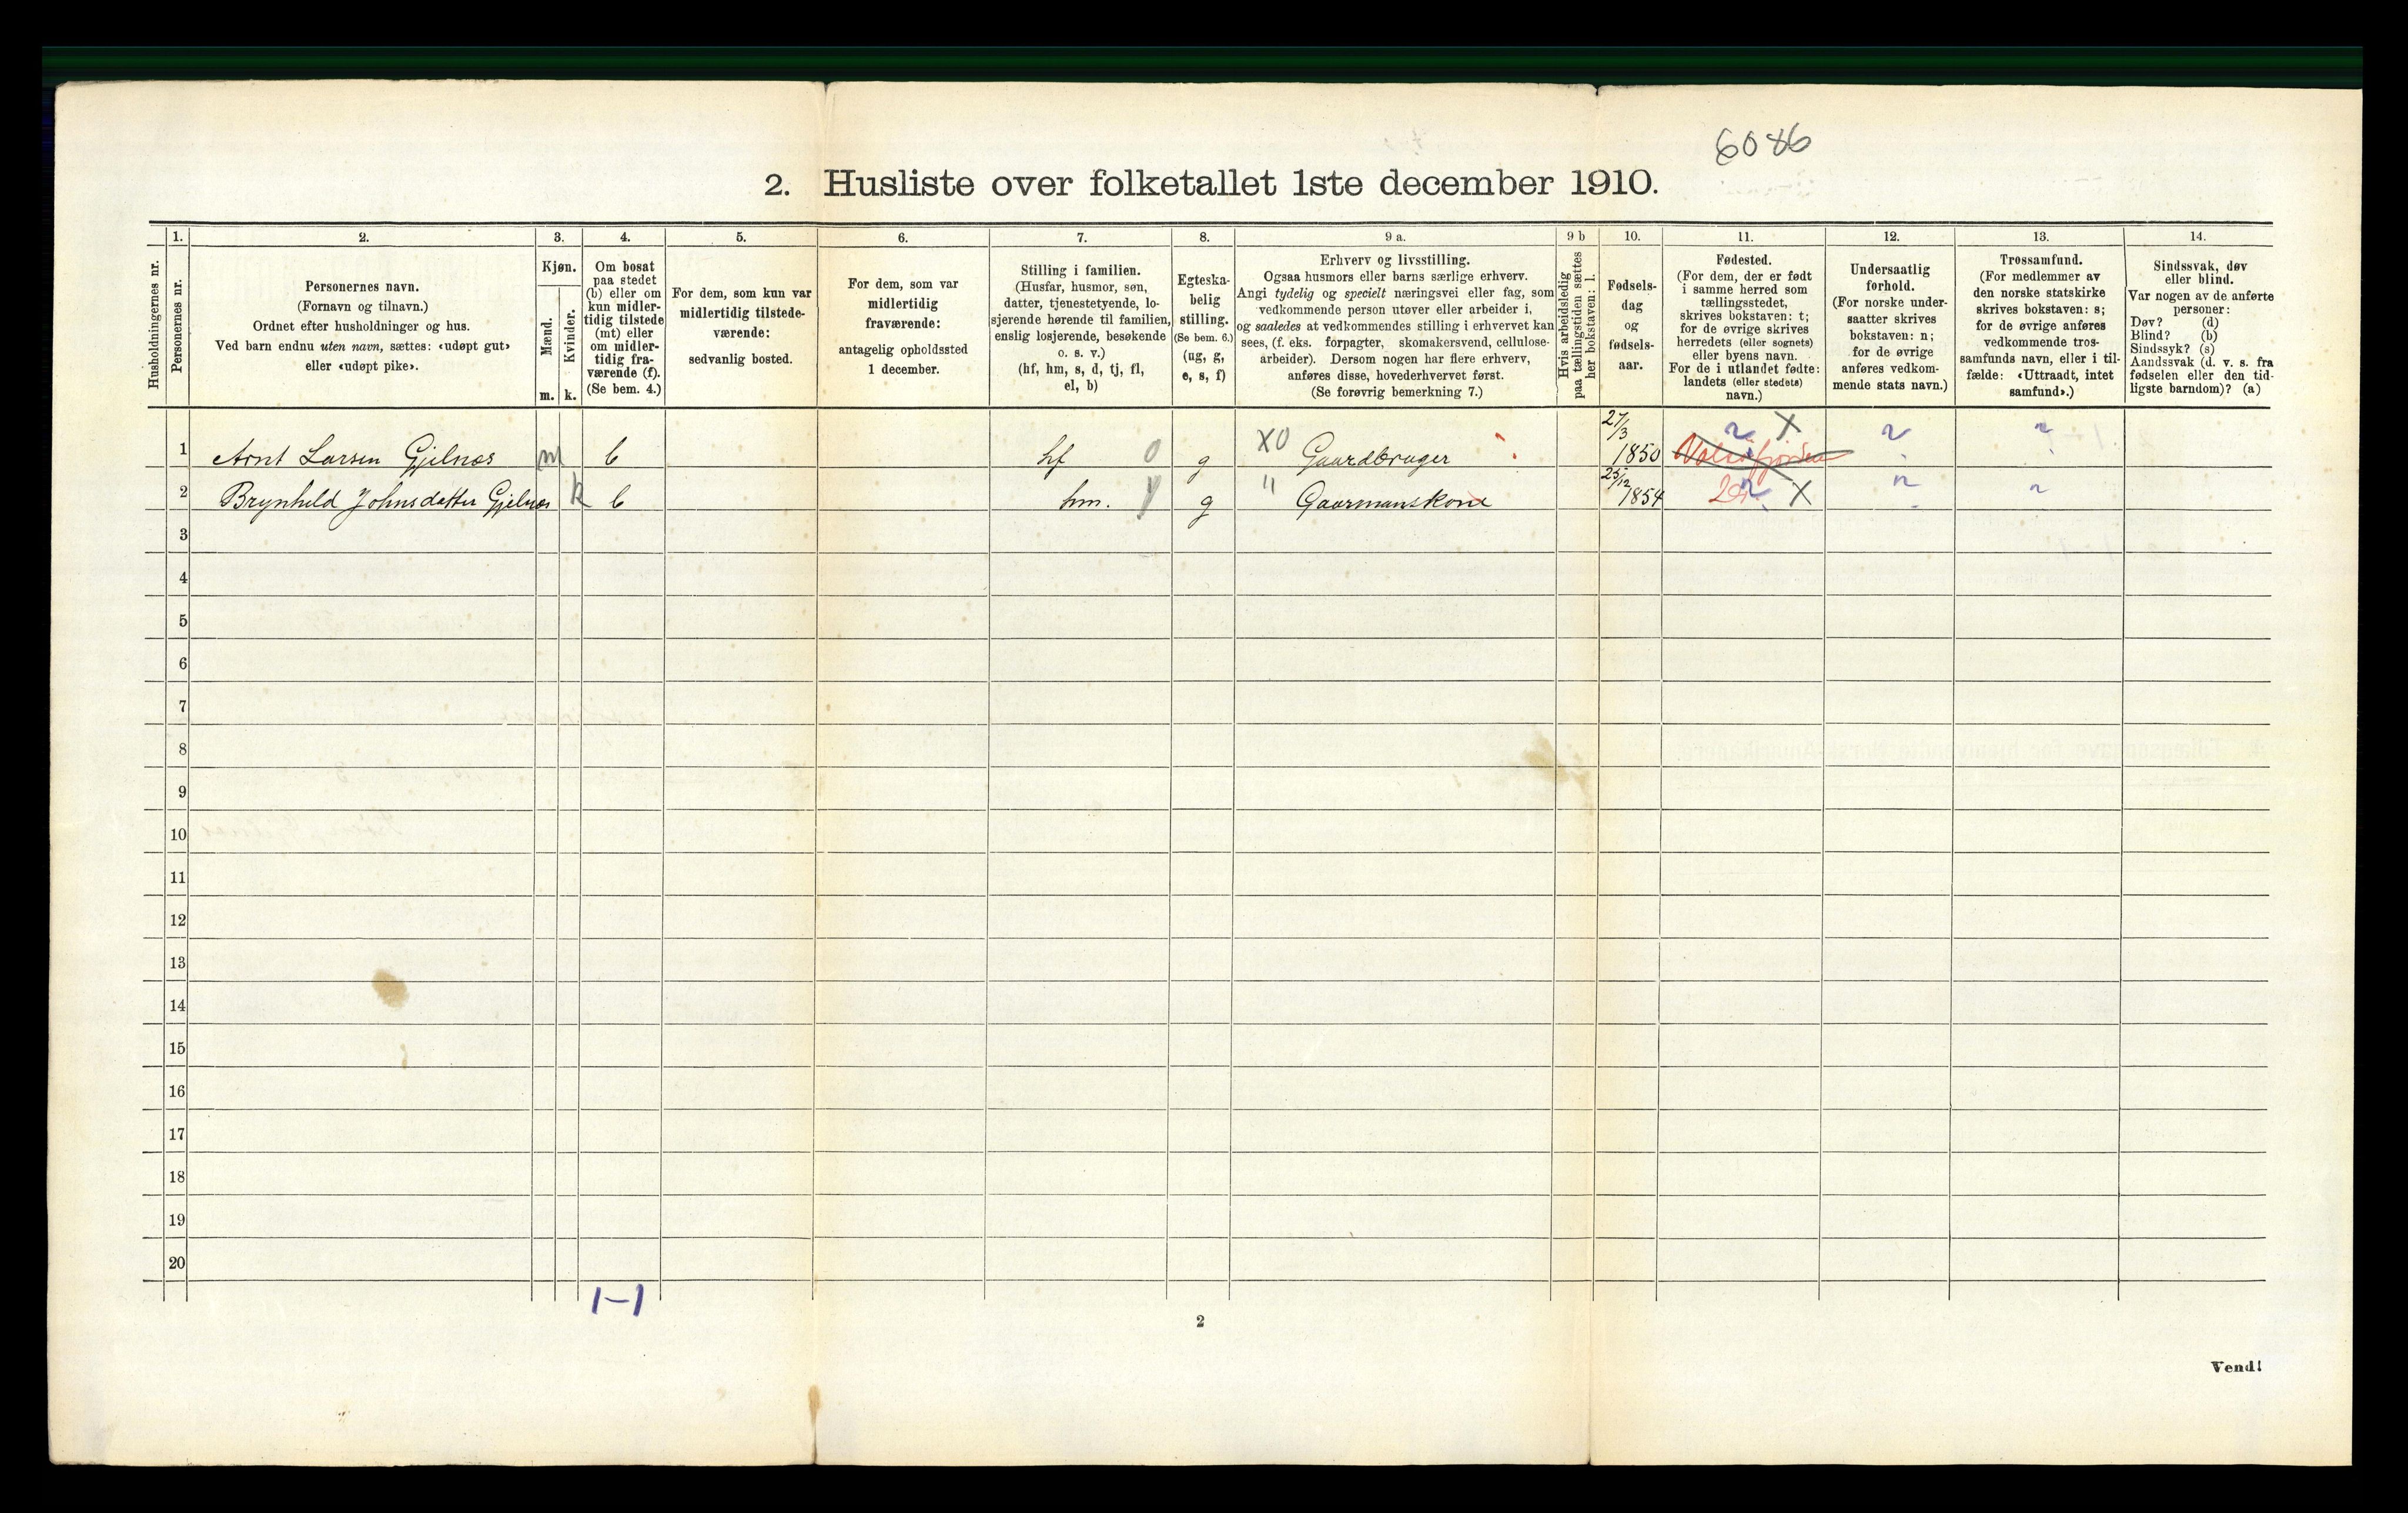 6086
2. Husliste over folketallet 1ste december 1910.
Husholdningernes nr.
1.
Personernes nr.
2.
Personernes navn.
(Fornavn og tilnavn.)
Ordnet efter husholdninger og hus.
Ved barn endnu uten navn, sættes: «udøpt gut»
eller «udøpt pike».
3.
Kjøn.
Mænd.
Kvinder.
m. k.
4.
Om bosat
paa stedet
(b) eller om
kun midler-
tidig tilstede
(mt) eller
om midler-
tidig fra-
værende (f).
(Se bem. 4.)
5.
For dem, som kun var
midlertidig tilstede-
værende:
sedvanlig bosted.
6.
For dem, som var
midlertidig
fraværende:
antagelig opholdssted
1 december.
7.
Stilling i familien.
(Husfar, husmor, søn,
datter, tjenestetyende, lo-
sjerende hørende til familien,
enslig losjerende, besøkende
o. s. v.)
(hf, hm, s, d, tj, fl,
el, b)
8.
Egteska-
belig
stilling.
(Se bem. 6.)
(ug, g,
e, s, f)
9 a.
Erhverv og livsstilling.
Ogsaa husmors eller barns særlige erhverv.
Angi tydelig og specielt næringsvei eller fag, som
vedkommende person utøver eller arbeider i,
og saaledes at vedkommendes stilling i erhvervet kan
sees, (f. eks. forpagter, skomakersvend, cellulose-
arbeider). Dersom nogen har flere erhverv,
anføres disse, hovederhvervet først.
(Se forøvrig bemerkning 7.)
9 b
Hvis arbeidsledig
paa tællingstiden sættes
her bokstaven: l.
10.
Fødsels-
dag
og
fødsels-
aar.
11.
Fødested.
(For dem, der er født
i samme herred som
tællingsstedet,
skrives bokstaven: t;
for de øvrige skrives
herredets (eller sognets)
eller byens navn.
For de i utlandet fødte:
landets (eller stedets)
navn.)
12.
Undersaatlig
forhold.
(For norske under-
saatter skrives
bokstaven: n;
for de øvrige
anføres vedkom-
mende stats navn.)
13.
Trossamfund.
(For medlemmer av
den norske statskirke
skrives bokstaven: s;
for de øvrige anføres
vedkommende tros-
samfunds navn, eller i til-
fælde: «Uttraadt, intet
samfund».)
14.
Sindssvak, døv
eller blind.
Var nogen av de anførte
personer:
Døv? (d)
Blind? (b)
Sindssyk? (s)
Aandssvak (d. v. s. fra
fødselen eller den tid-
ligste barndom)? (a)
1 Arnt Larsen Gjelnæs m b hf 0 g X0 Gaardbruger 27/3 1850 n X n n
2 Brynhild Johnsdatter Gjelnæs k b hm. g " Gaarmanskone 25/12 1854 n X n n
3
4
5
6
7
8
9
10
11
12
13
14
15
16
17
18
19
20
1-1
2
Vend!